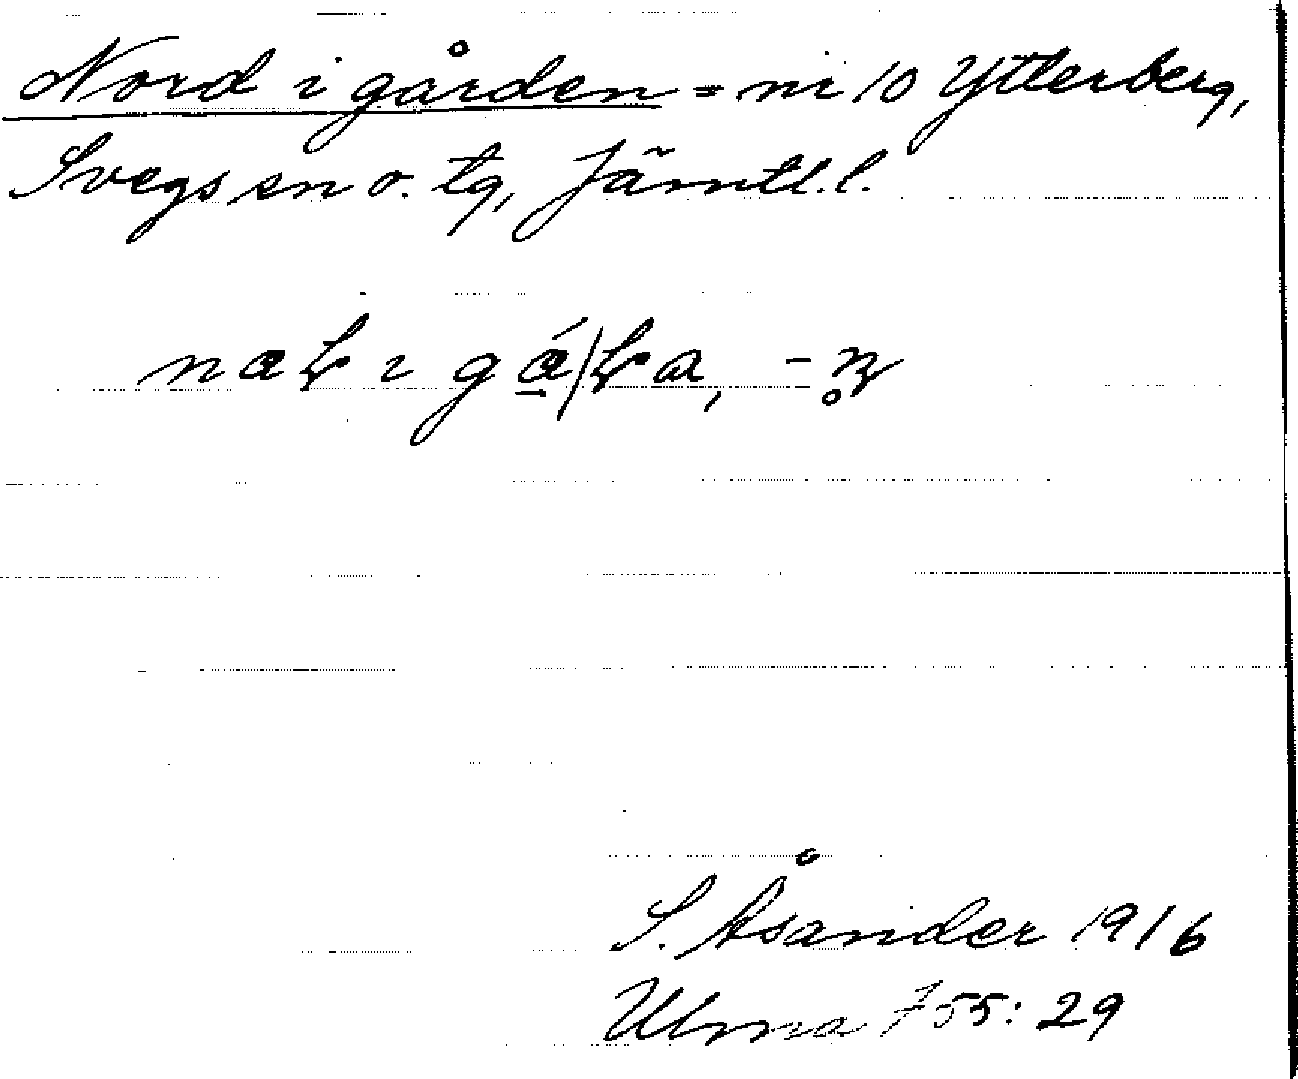 Nord i gården = nr 10 Ytterberg,
Svegs sn o. tg, Jämtl. l.
S. Åsander 1916
Ulma 755: 29